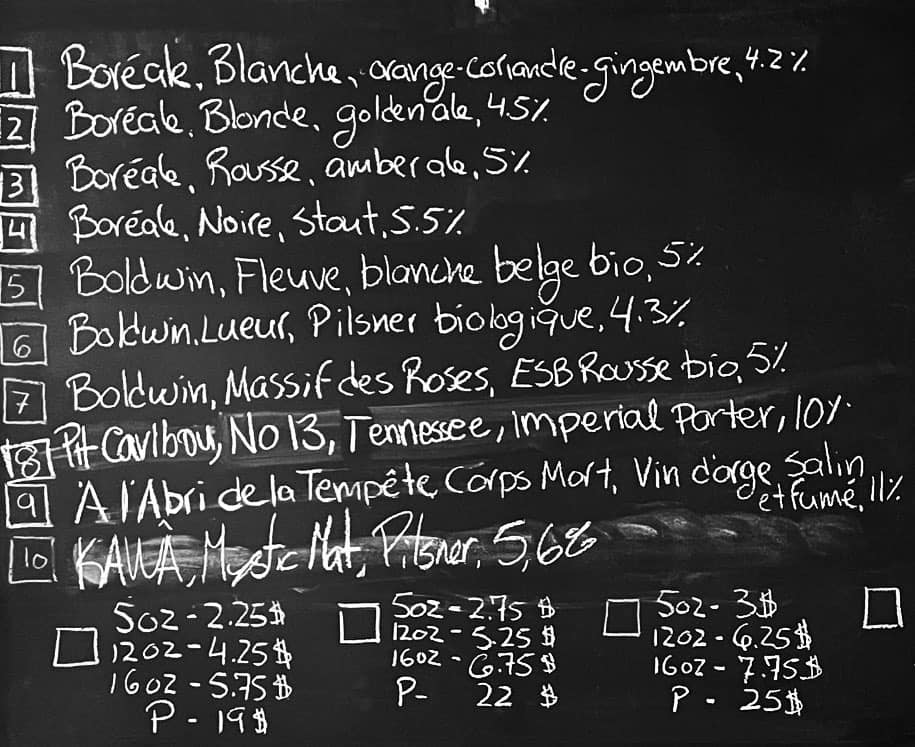 1 Boréale, Blanche, orange-coriandre-gingembre, 4.2%
2 Boréale, Blonde, golden ale, 4.5%
3 Boréale, Rousse, amber ale, 5%
4 Boréale, Noire, Stout, 5.5%
5 Boldwin, Fleuve, blanche belge bio, 5%
6 Boldwin, Lueur, Pilsner biologique, 4.3%
7 Boldwin, Massif des Roses, ESB Rousse bio, 5%
8 Pit Caribou, No 13, Tennessee, imperial Porter, 10%
9 À l'Abri de la Tempête, Corps Mort, Vin d'orge, Salin
et fumé, 11%
10 KAWÂ, Mystic Nat, Pilsner, 5,6%
5oz - 2.25$
12oz - 4.25$
16oz - 5.75$
P - 19$
5oz - 2.75$
12oz - 5.25$
16oz - 6.75$
P- 22 $
5oz - 3$
12oz - 6.25$
16oz - 7.75$
P - 25$